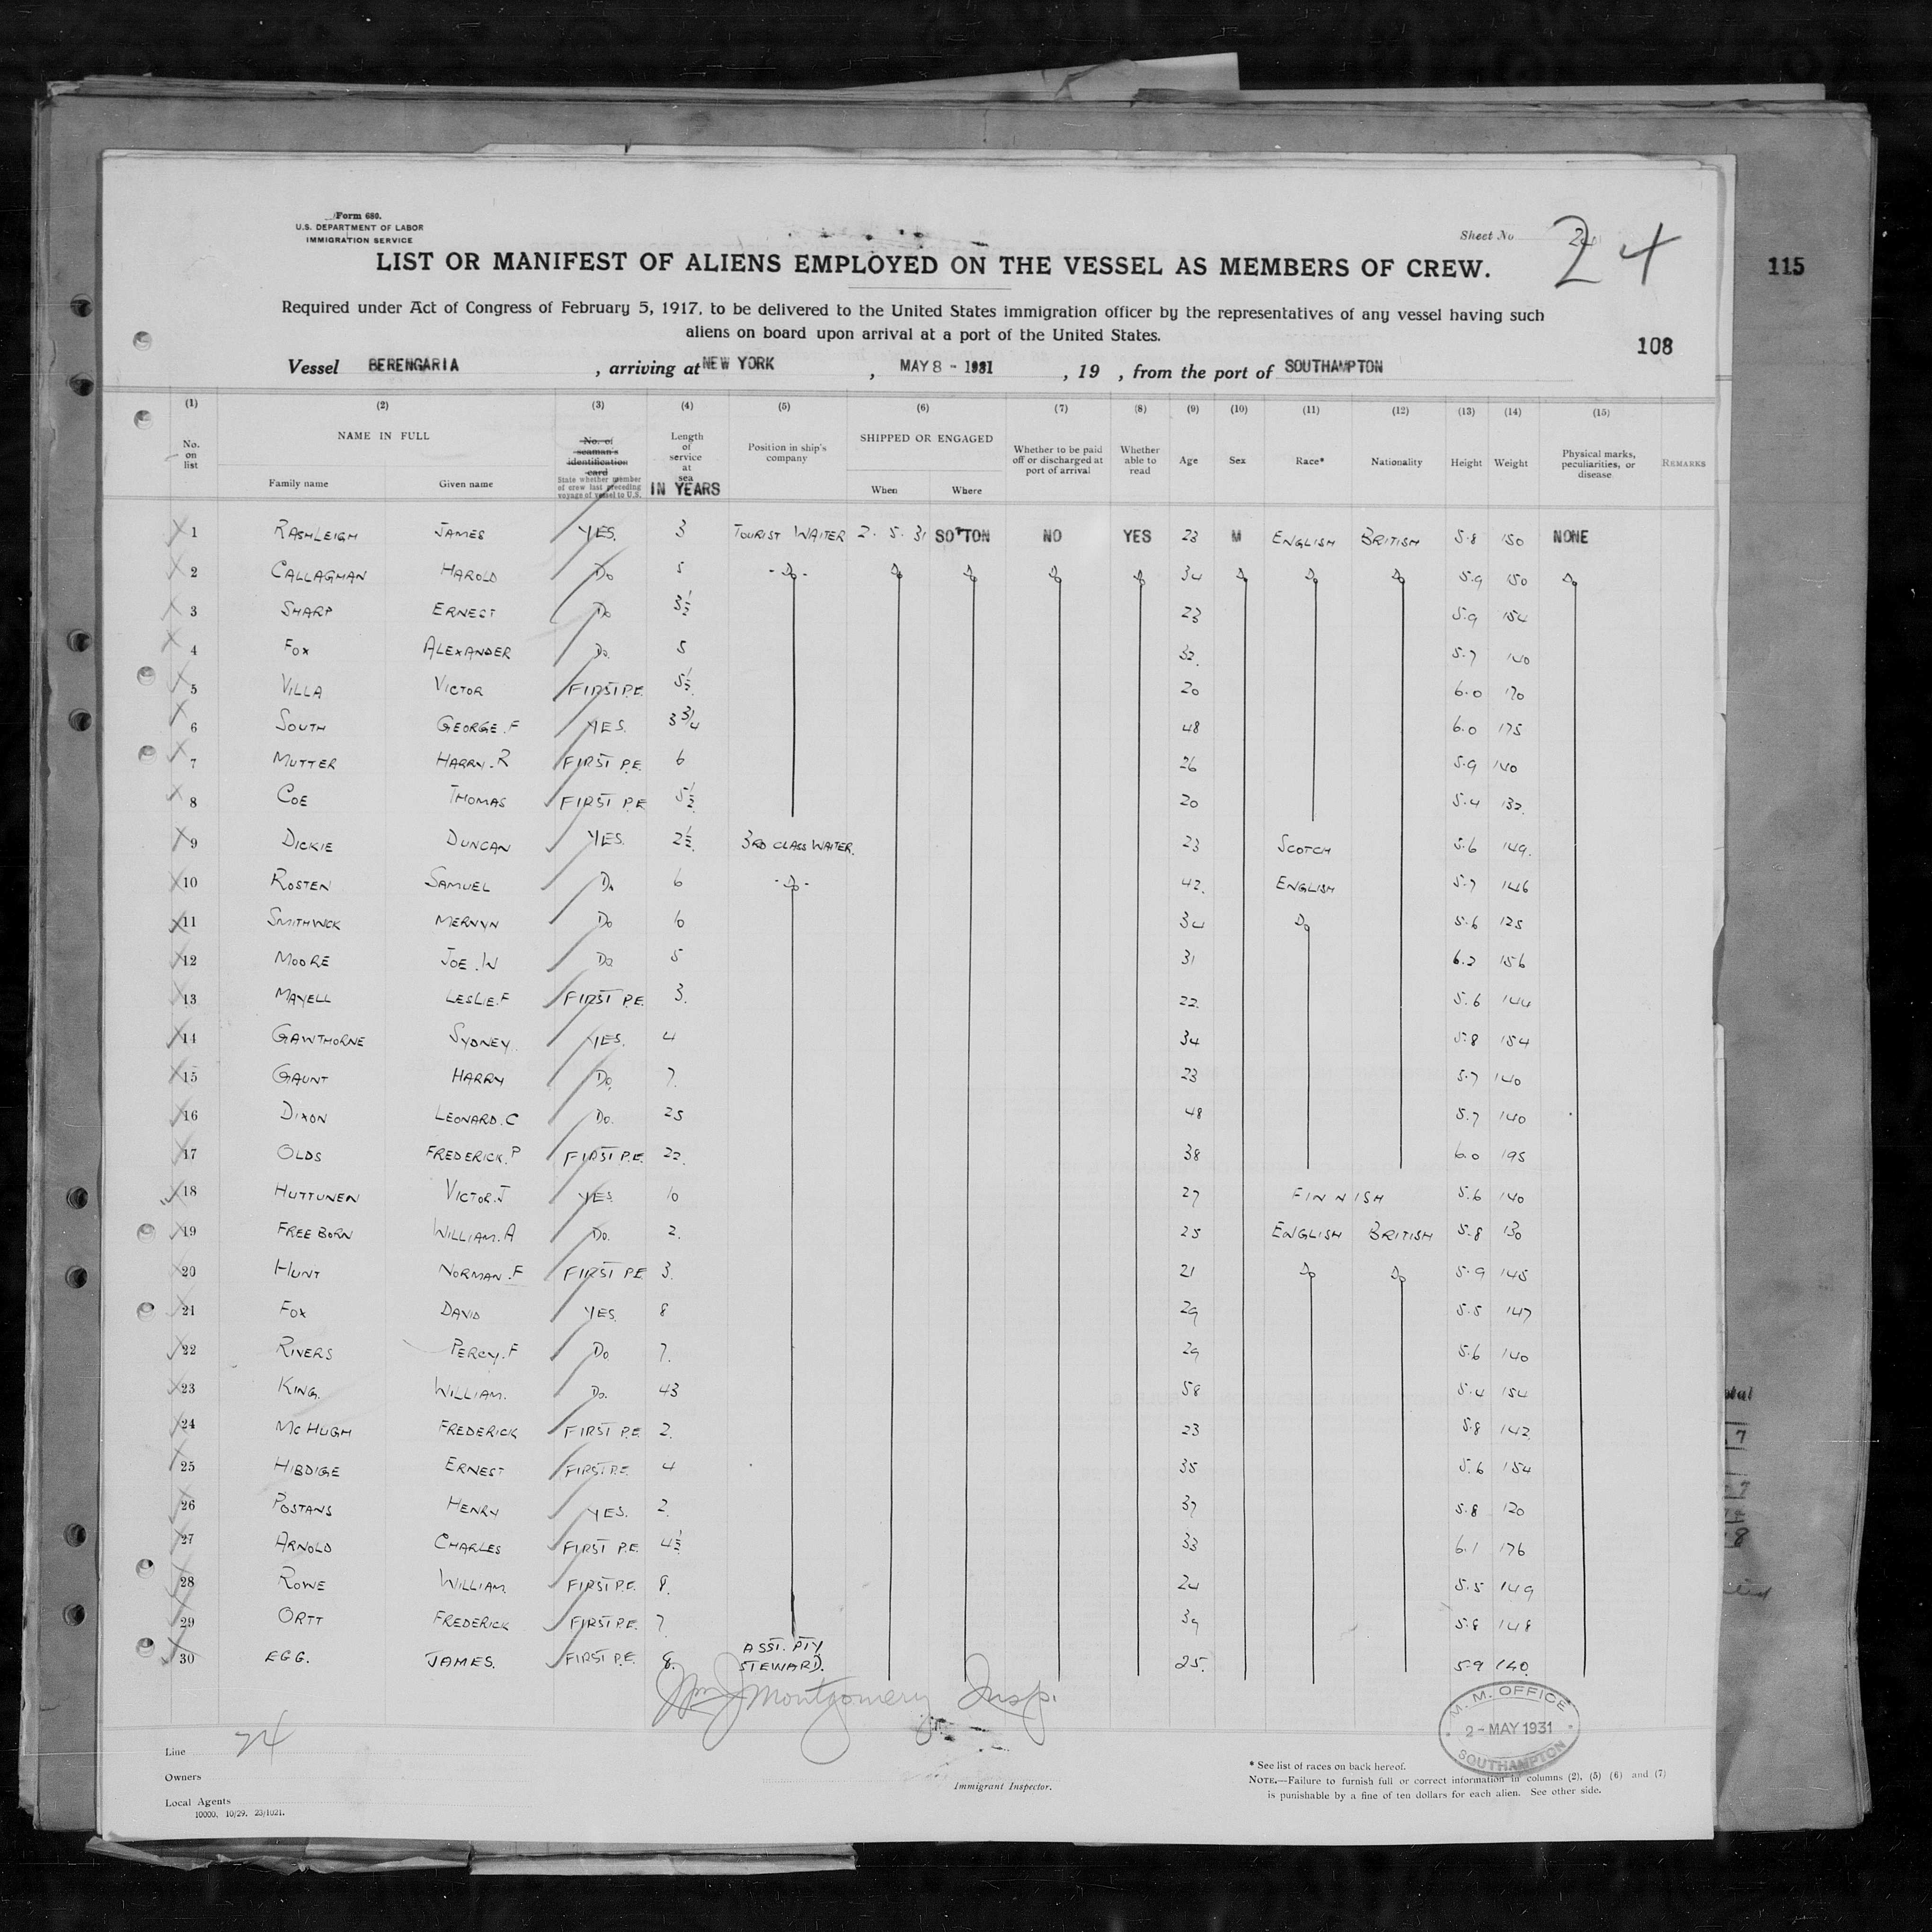 Form 680.
U.S. DEPARTMENT OF LABOR
IMMIGRATION SERVICE
Sheet No 24
24
115
LIST OR MANIFEST OF ALIENS EMPLOYED ON THE VESSEL AS MEMBERS OF CREW.
Required under Act of Congress of February 5, 1917, to be delivered to the United States immigration officer by the representatives of any vessel having such
aliens on board upon arrival at a port of the United States.
108
Vessel BERENGARIA , arriving at NEW YORK , MAY 8 - 1931 , 19 , from the port of SOUTHAMPTON
(1) (2) (3) (4) (5) (6) (7) (8) (9) (10) (11) (12) (13) (14) (15)
No. on list NAME IN FULL Family name Given name No. of seaman's identification card State whether member of crew last preceding voyage of vessel to U.S. Length of service at sea IN YEARS Position in ship's company SHIPPED OR ENGAGED When Where Whether to be paid off or discharged at port of arrival Whether able to read Age Sex Race* Nationality Height Weight Physical marks, peculiarities, or disease REMARKS
1 RASHLEIGH JAMES YES. 3 TOURIST WAITER 2. 5. 31 SO'TON NO YES 23 M ENGLISH BRITISH 5.8 150 NONE
2 CALLAGHAN HAROLD Do 5 -Do- Do Do Do Do 34 Do Do Do 5.9 150 Do
3 SHARP ERNEST Do 3½ 23 5.9 154
4 FOX ALEXANDER Do. 5 32. 5.7 140
5 VILLA VICTOR FIRST P.E. 5½ 20 6.0 170
6 SOUTH GEORGE.F YES. 3¾ 48 6.0 175
7 MUTTER HARRY.R FIRST P.E. 6 26 5.9 140
8 COE THOMAS FIRST P.E 5½ 20 5.4 132.
9 DICKIE DUNCAN YES. 2½. 3RD CLASS WAITER. 23 SCOTCH 5.6 149.
10 ROSTEN SAMUEL Do 6 -Do- 42. ENGLISH 5.7 146
11 SMITHWCK MERVYN Do 10 34 Do 5.6 125
12 MOORE JOE.W Do 5 31 6.2 156
13 MAYELL LESLIE.F FIRST P.E. 3. 22. 5.6 144
14 GAWTHORNE SYDNEY. YES. 4 34 5.8 154
15 GAUNT HARRY Do. 7. 23 5.7 140
16 DIXON LEONARD.C Do. 25 48 5.7 140
17 OLDS FREDERICK.P FIRST P.E. 22. 38 6.0 195
18 HUTTUNEN VICTOR.J YES. 10 27 FINNISH 5.6 140
19 FREEBORN WILLIAM.A Do. 2. 25 ENGLISH BRITISH 5.8 130
20 HUNT NORMAN.F FIRST P.E 3. 21 Do Do 5.9 145
21 FOX DAVID YES. 8 29 5.5 147
22 RIVERS PERCY.F Do 7. 29 5.6 140
23 KING. WILLIAM. Do. 43 58 5.4 154
24 MCHUGH FREDERICK FIRST P.E. 2. 23 5.8 142.
25 HIBDIGE ERNEST FIRST P.E. 4 35 5.6 154
26 POSTANS HENRY YES. 2. 37 5.8 120
27 ARNOLD CHARLES FIRST P.E. 4½ 33 6.1 176
28 ROWE WILLIAM. FIRST P.E. 8. 24 5.5 149
29 ORTT FREDERICK FIRST P.E. 7. 39 5.8 148
30 EGG. JAMES. FIRST P.E. 8. ASST. PTY STEWARD. 25. 5.9 140.
Wm J Montgomery Insp.
M. M. OFFICE
2 - MAY 1931
SOUTHAMPTON
Line 24
Owners
Local Agents
10000, 10/29. 23/1021.
Immigrant Inspector.
* See list of races on back hereof.
NOTE.—Failure to furnish full or correct information in columns (2), (5) (6) and (7)
is punishable by a fine of ten dollars for each alien. See other side.